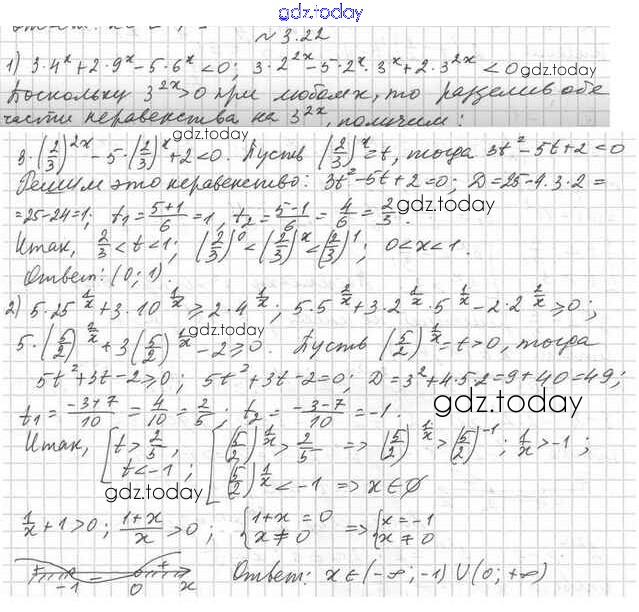 gdz.today
№3.22
1) 3·4^x+2·9^x-5·6^x<0; 3·2^{2x}-5·2^x·3^x+2·3^{2x}<0
gdz.today
Поскольку 3^{2x}>0 при любом x, то разделив обе
части неравенства на 3^{2x}, получим:
gdz.today
3·(2/3)^{2x}-5·(2/3)^x+2<0. Пусть (2/3)^x=t, тогда 3t²-5t+2<0
Решим это неравенство: 3t²-5t+2=0; D=25-4·3·2=
=25-24=1; t₁=(5+1)/6=1, t₂=(5-1)/6=4/6=2/3.
gdz.today
Итак, 2/3<t<1; (2/3)^0<(2/3)^x<(2/3)^1; 0<x<1.
Ответ: (0;1).
2) 5·25^{1/x}+3·10^{1/x}≥2·4^{1/x}; 5·5^{2/x}+3·2^{1/x}·5^{1/x}-2·2^{2/x}≥0;
gdz.today
5·(5/2)^{2/x}+3(5/2)^{1/x}-2≥0. Пусть (5/2)^{1/x}=t>0, тогда
5t²+3t-2≥0; 5t²+3t-2=0; D=3²+4·5·2=9+40=49;
gdz.today
t₁=(-3+7)/10=4/10=2/5; t₂=(-3-7)/10=-1.
Итак, [t>2/5, t<-1; [(5/2)^{1/x}>2/5 => (5/2)^{1/x}>(5/2)^{-1}; 1/x>-1;
(5/2)^{1/x}<-1 => x∈∅
gdz.today
1/x+1>0; (1+x)/x>0; {1+x=0 x≠0 => {x=-1 x≠0
+ -1 - 0 + x Ответ: x∈(-∞;-1)∪(0;+∞)